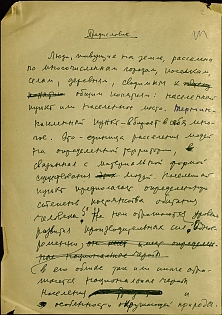 Предисловие
Люди, живущие на земле, расселены
по многочисленным городам, поселкам,
селам, деревням, сводимым к
общим понятиям: населенный
пункт или населенное место. Термин
населенный пункт вбирает в себя многое
Это единица расселения людей
на определенной территории,
связанная с материальной формой
существования людей. Населенный
пункт предполагает определенную
степень постоянства обитания
человека. На нем отражается уровень
развития производительных сил.
в его облике так или иначе отра-
жается национальные черты
населения
и особенности окружающей природы.